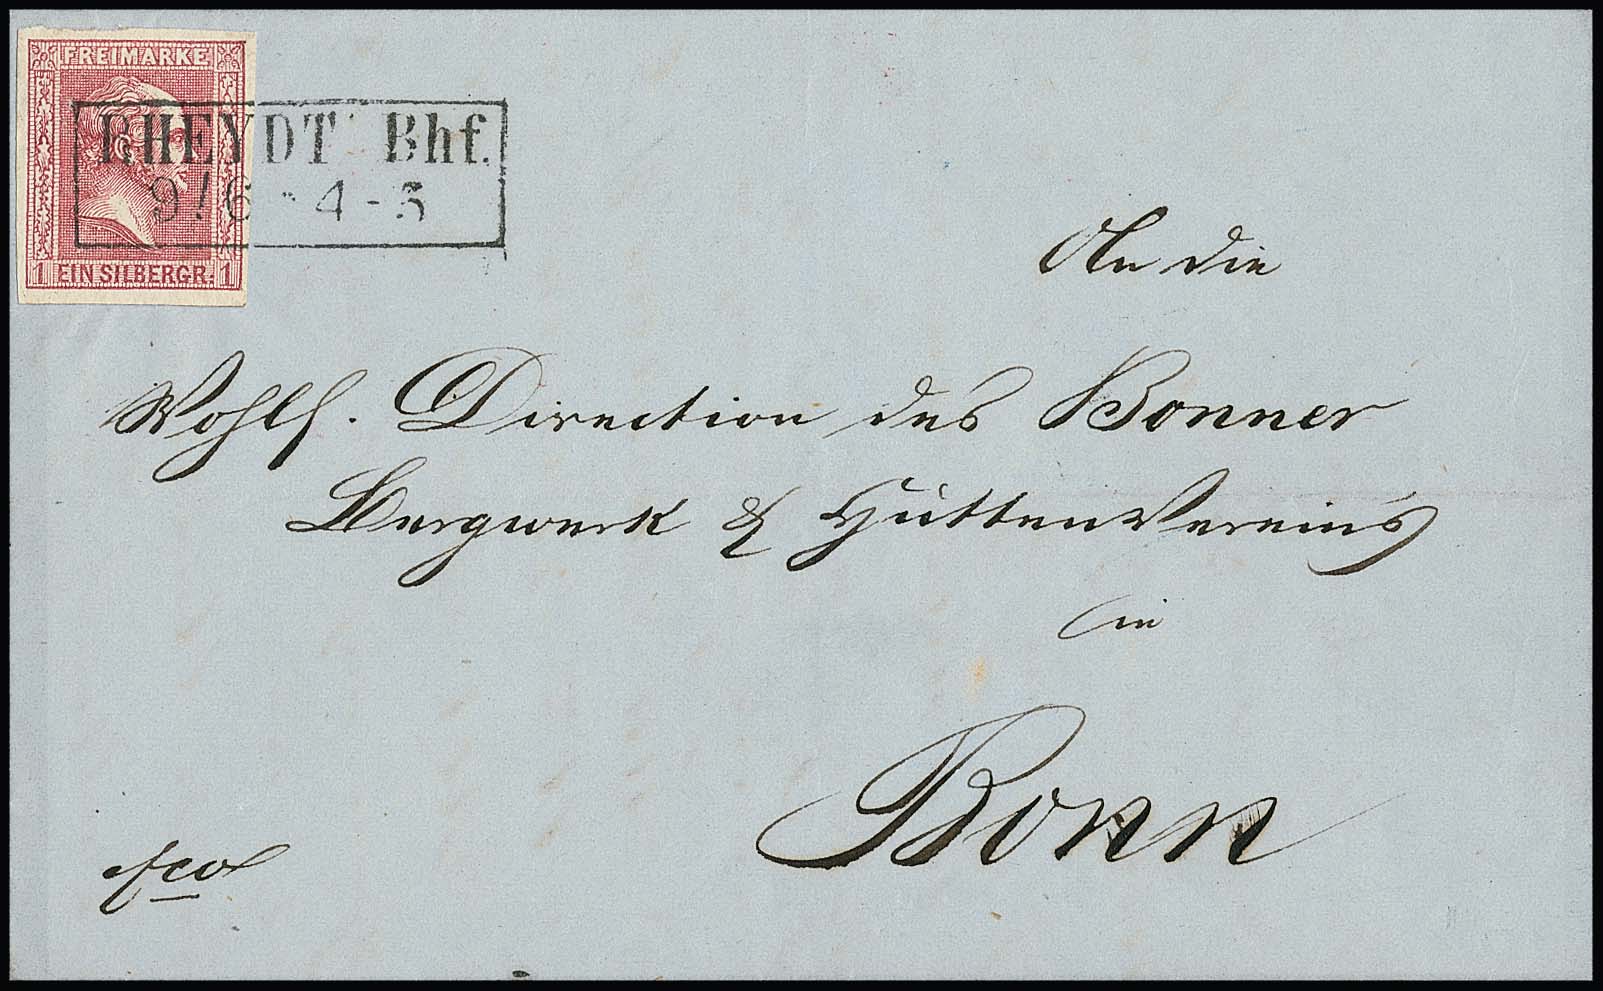 FREIMARKE
1 EIN SILBERGR. 1
RHEYDT Bhf.
9/6 4-5
An die
Wohll. Direction des Bonner
Bergwerk & HüttenVereins
in
Bonn
fco